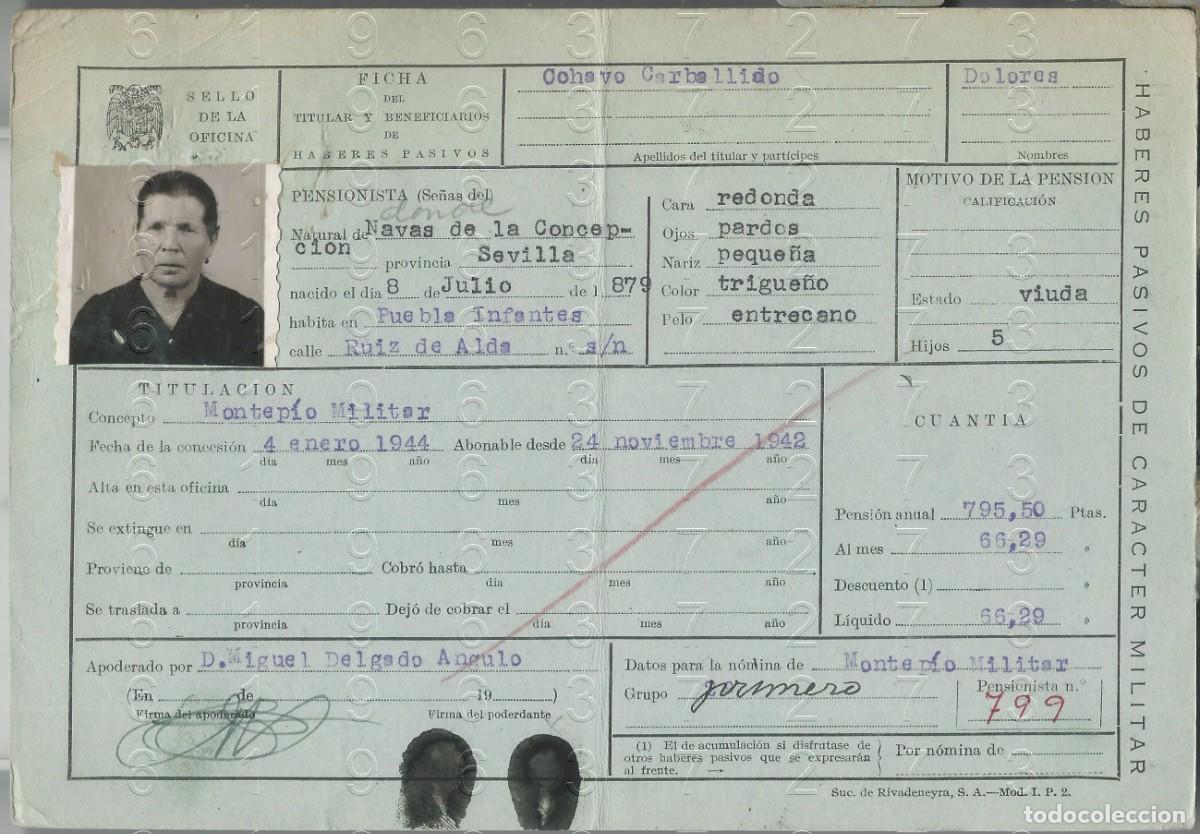 SELLO
DE LA
OFICINA
FICHA
DEL
TITULAR Y BENEFICIARIOS
DE
HABERES PASIVOS
Cohavo Carballido
Apellidos del titular y partícipes
Dolores
Nombres
HABERES PASIVOS DE CARACTER MILITAR
PENSIONISTA (Señas del)
donde
Natural de Navas de la Concep-
cion provincia Sevilla
nacido el día 8 de Julio de 1 879
habita en Puebla Infantes
calle Ruiz de Alda n.º s/n
Cara redonda
Ojos pardos
Nariz pequeña
Color trigueño
Pelo entrecano
MOTIVO DE LA PENSION
CALIFICACIÓN
Estado viuda
Hijos 5
TITULACION
Concepto Montepío Militar
Fecha de la concesión 4 enero 1944 Abonable desde 24 noviembre 1942
día mes año día mes año
Alta en esta oficina
día mes año
Se extingue en
día mes año
Proviene de Cobró hasta
provincia día mes año
Se traslada a Dejó de cobrar el
provincia día mes año
CUANTIA
Pensión anual 795,50 Ptas.
Al mes 66,29 »
Descuento (1) »
Líquido 66,29 »
Apoderado por D. Miguel Delgado Angulo
(En de 19 )
Firma del apoderado Firma del poderdante
Datos para la nómina de Montepío Militar
Grupo primero
Pensionista n.º
799
(1) El de acumulación si disfrutase de
otros haberes pasivos que se expresarán
al frente. →
Por nómina de
Suc. de Rivadeneyra, S. A.—Mod. I. P. 2.
todocoleccion